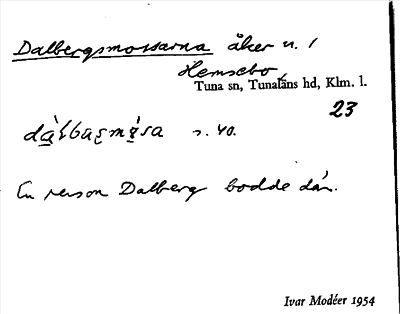 Dalbergsmossarna åker n. 1
Hemsebo
Tuna sn, Tunaläns hd, Klm. l.
23
s. 40.
En person Dalberg bodde där.
Ivar Modéer 1954